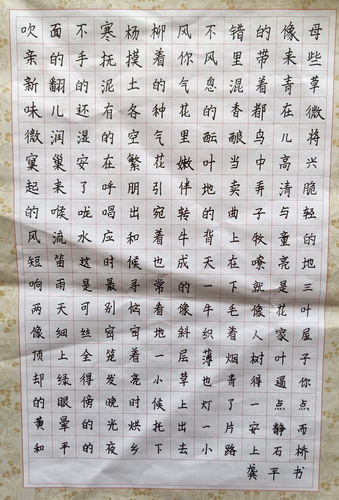 吹面不寒杨柳风不错的像母
亲的手抚摸着你风里带来些
新翻的泥土的气息混着青草
味儿还有各种花的香都在微
微润湿的空气里酝酿鸟儿将
窠巢安在繁花嫩叶当中高兴
起来了呼朋引伴地卖弄清脆
的喉咙唱出宛转的曲子与轻
风流水应和着牛背上牧童的
短笛这时候也成天在嘹亮地
响雨是最寻常的一下就是三
两天可别恼看像牛毛像花针
像细丝密密地斜织着人家屋
顶上全笼着一层薄烟树叶子
却绿得发亮小草也青得逼你
的眼傍晚时候上灯了一点点
黄晕的光烘托出一片安静而
和平的夜乡下去小路上石桥
龚平书